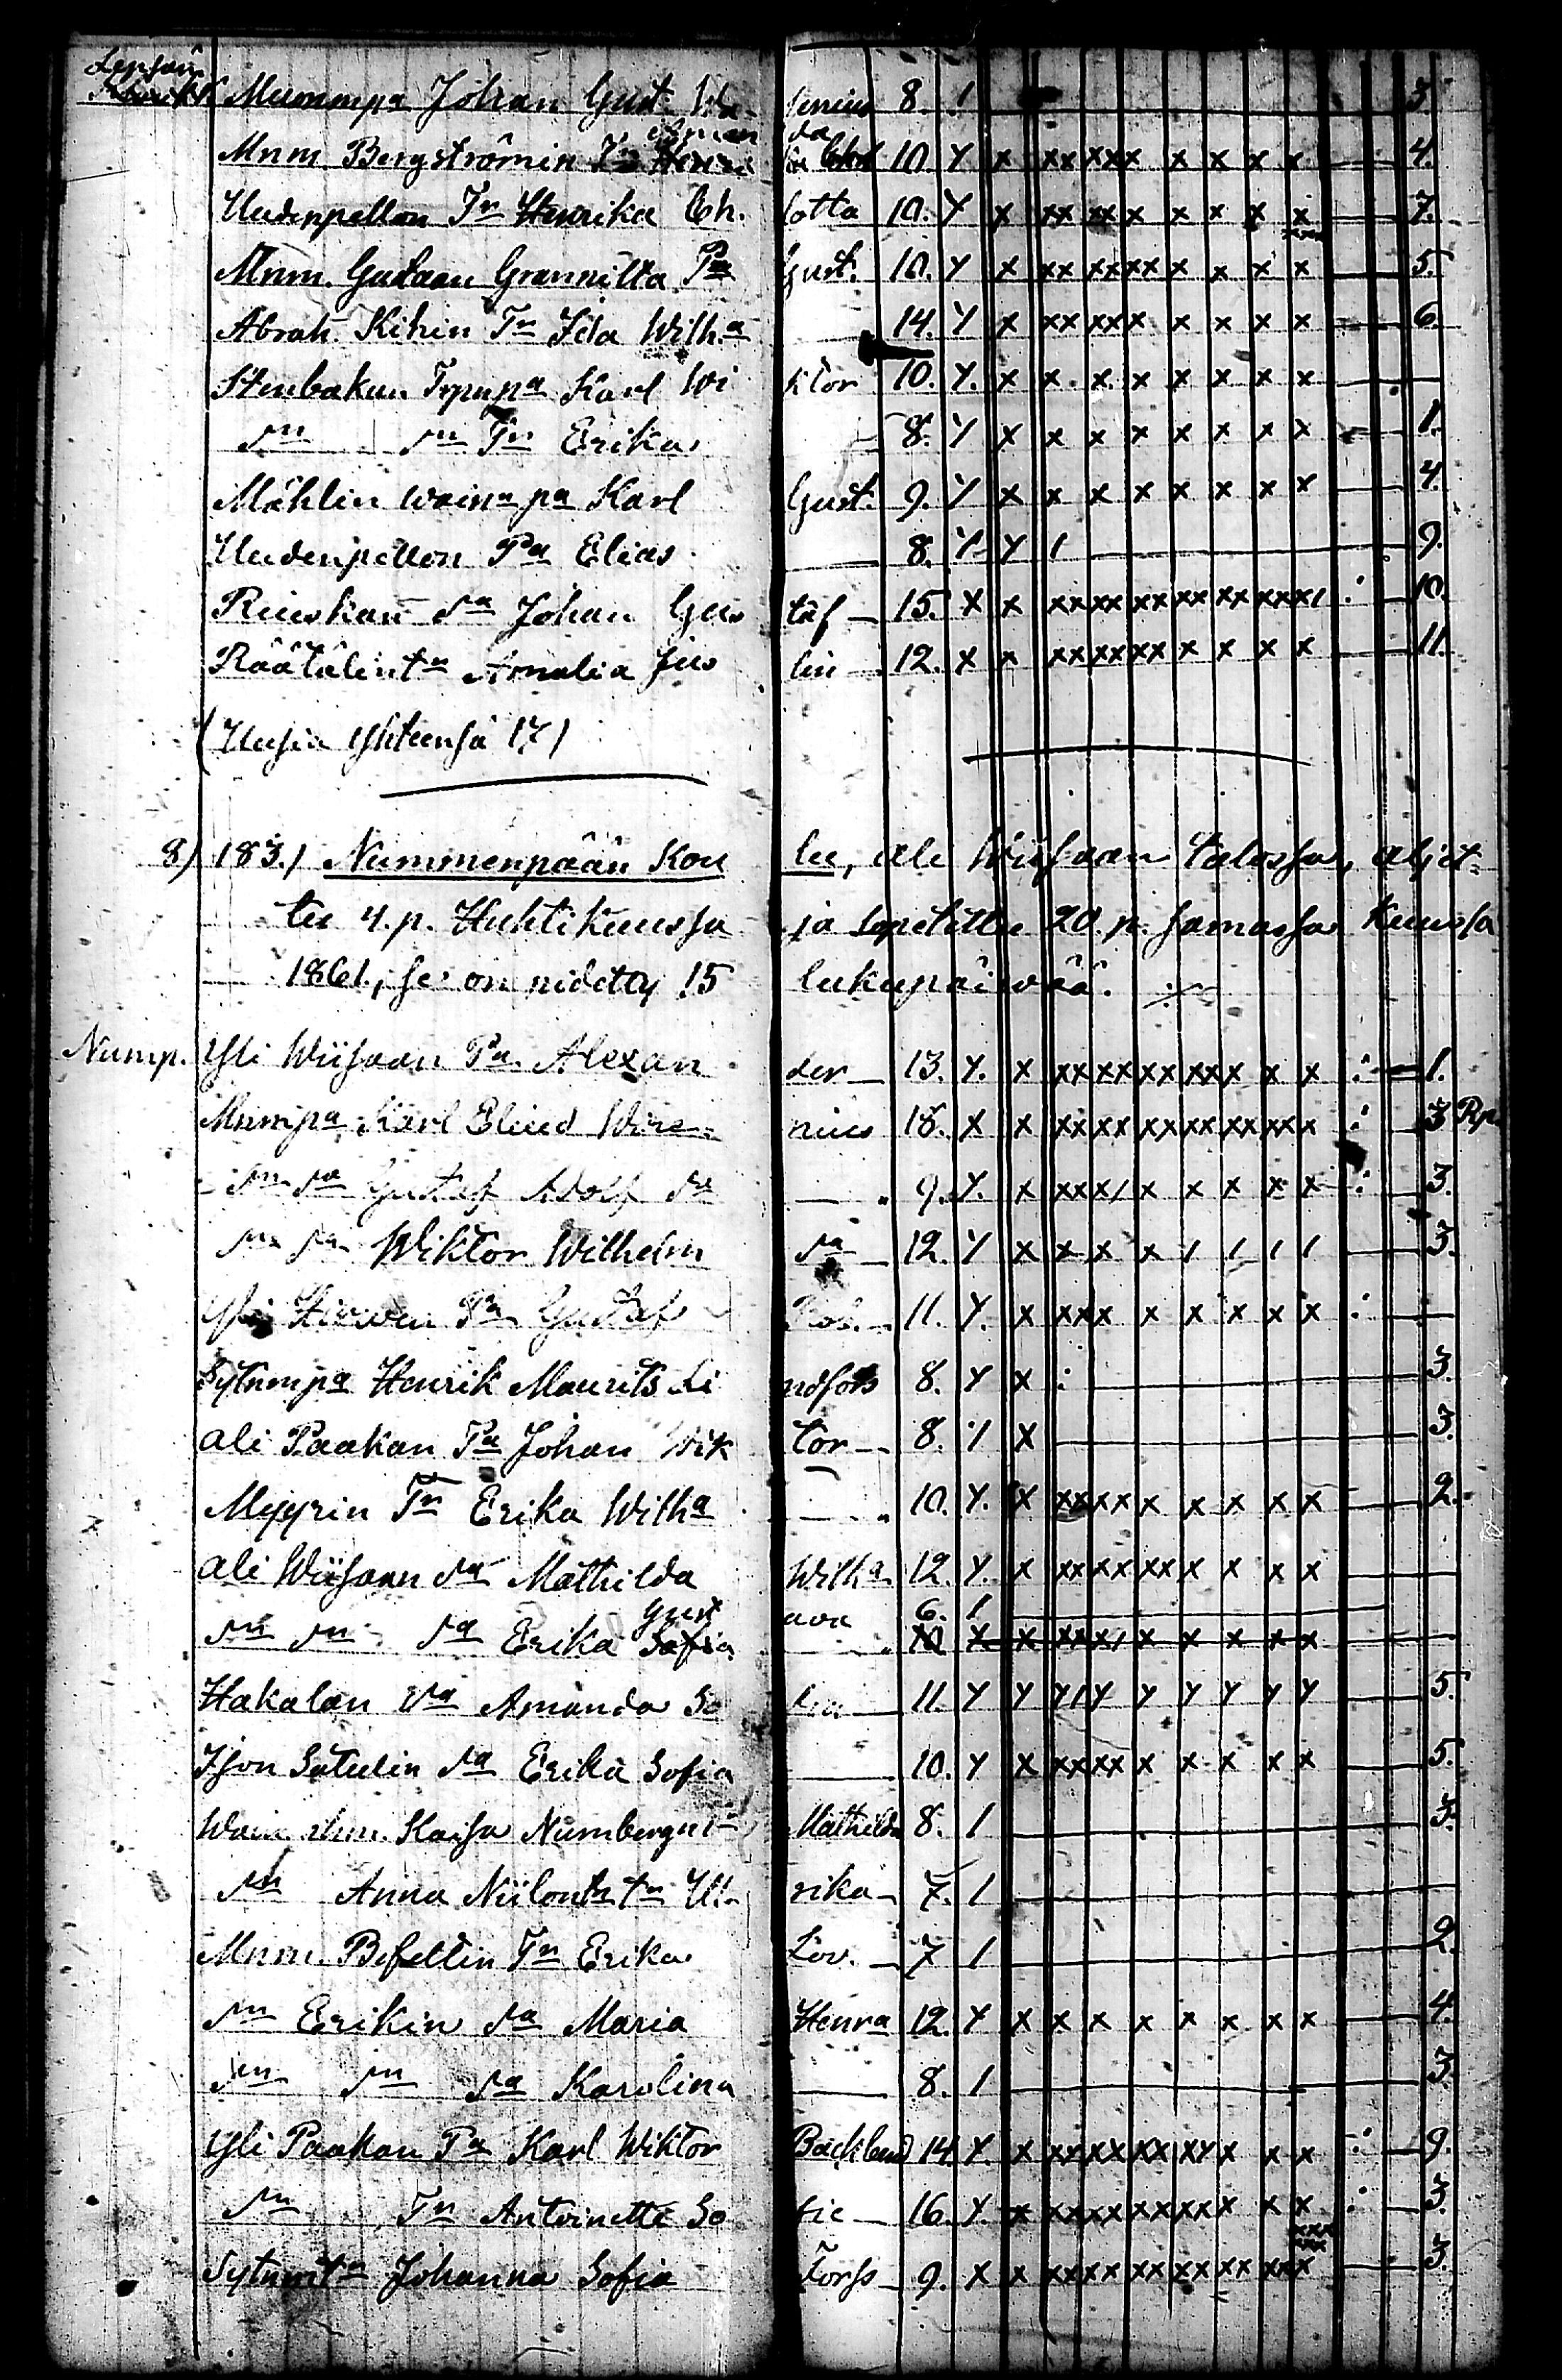 Lepsän
Muonmpa Johan Gust. We- senius 8. / 3
Mnm Bergströmin Tr Aman da 10 Y x xx xxx x x x x 4.
Uudenpellon Tr Henrika Ch. lotta 10. Y x xx xx x x x x x 7.
Mnm. Gustaau Grannilta Pa Gust. 10. Y x xx xx xx x x x x 5.
Abrah. Kihin Tr Ida Wilh.a 14. Y x xx xxx x x x x 6.
Stenbakan Karl Wi ktor 10. Y. x x x x x x x x
dn dn Tr Erika 8. Y x x x x x x x x 1.
Mählin waina pa Karl Gust. 9. Y x x x x x x x x 4.
Uudenpellon Pa Elias 8. Y Y / 9.
Ruuskan da Johan Gus taf 15. X x xx xx xx xx xx xx x/ : 10.
Räätälin ta Amalia Jus lin 12. x x xx xx xx x x x x 11.
(Uusia yhteensä 17)
8) 183.) Nummenpään Kou lu, ali Wiisaan talossa, aljet-
tu 4. p. Huhtikuussa ja lopetettu 20. p. samassa kuussa
1861., se on pidetty 15 lukupäiwää.
Nump. Yli Wiisaan Pa Alexan der 13. Y. x xx xx xx xxx x x : 1.
Mnmpa Karl Elied Wire- nius 18. x x xx xx xx xx xx xx x : 3 Rp.
dn da Gustaf Adolf da 9. Y. x xx x/ x x x x x : 3.
dn da Wiktor Wilhelm da 12. Y x x x x / / / / 3.
Yli Pa Gustaf Rob. 11. Y. x xxx x x x x x :
Sytnmpa Henrik Maurits Li ndfors 8. Y x : 3.
ali Paakan Pa Johan Wik tor 8. Y x 3.
Myyrin Tr Erika Wilha 10. Y. x xx xx x x x x x 2.
ali Wiisaan da Mathilda Wilha 12. Y. x xx xx xx x x x x
Gust ava 6. /
dn dn da Erika Sofia 10 Y x xx x/ x x x x x
Hakalan da Amanda So fia 11. Y Y Y/Y Y Y Y Y Y 5.
Ison Satulin da Erika Sofia 10. Y x xx xx x x x x x 5.
Wain Kaisa Nurnbergin Mathilda 8. / 3.
dn Anna Niilontr tr Ul- rika 7. /
Mnm. Befellin Tr Erika Lov. 7 / 2.
dn Erikin da Maria Henra 12. Y x x x x x x x x 4.
dn dn da Karolina 8. / 3.
Yli Paakan Pa Karl Wiktor Backlund 14. Y. x xx xx xx xx x x x : 9.
dn Tr Antoinette So fie 16. Y. x xx xx xx xx x x x : 3.
Sytnmta Johanna Sofia Forss 9. X x xx xx xx xx xx xx x 3.